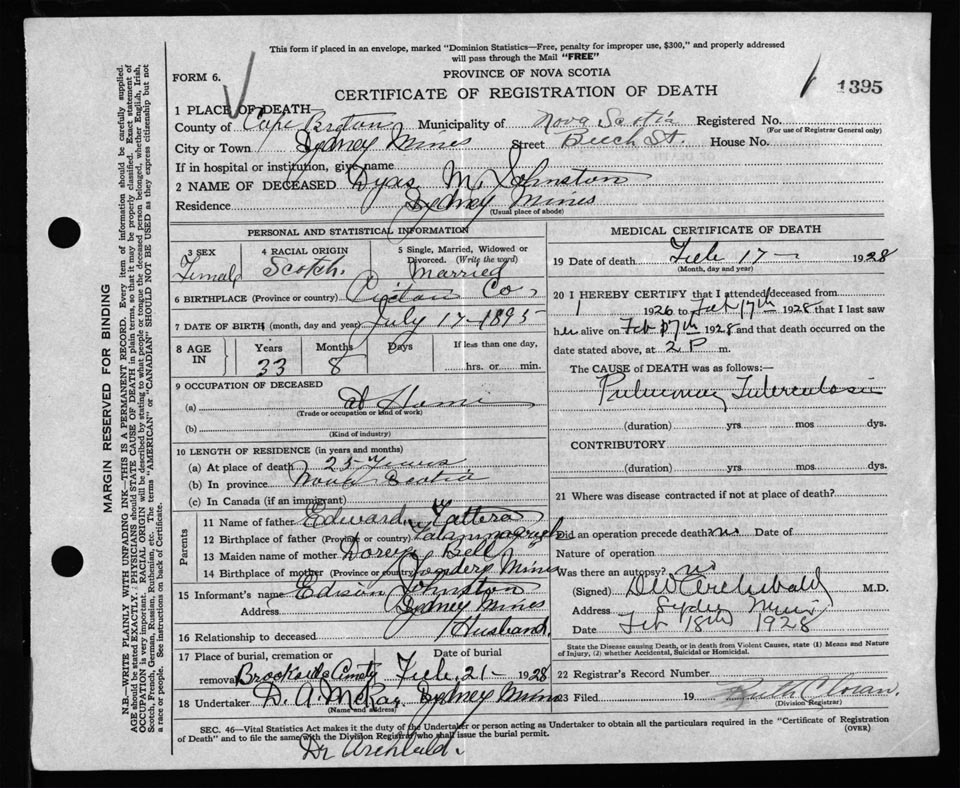 This form if placed in an envelope, marked "Dominion Statistics—Free, penalty for improper use, $300," and properly addressed
will pass through the Mail "FREE"
FORM 6.
PROVINCE OF NOVA SCOTIA
CERTIFICATE OF REGISTRATION OF DEATH
1395
1 PLACE OF DEATH
County of Cape Breton Municipality of Nova Scotia Registered No.
(For use of Registrar General only)
City or Town Sydney Mines Street Beech St. House No.
If in hospital or institution, give name
2 NAME OF DECEASED Dyas M. Johnston
Residence Sydney Mines
(Usual place of abode)
PERSONAL AND STATISTICAL INFORMATION
3 SEX
Female
4 RACIAL ORIGIN
Scotch.
5 Single, Married, Widowed or
Divorced. (Write the word)
Married
6 BIRTHPLACE (Province or country) Co,
7 DATE OF BIRTH (month, day and year) July 17-1895
8 AGE IN
Years Months Days If less than one day,
33 8 hrs. or min.
9 OCCUPATION OF DECEASED
(a) at Home
(Trade or occupation or kind of work)
(b)
(Kind of industry)
10 LENGTH OF RESIDENCE (in years and months)
(a) At place of death 25 Years
(b) In province Nova Scotia
(c) In Canada (if an immigrant)
Parents
11 Name of father Edward
12 Birthplace of father (Province or country) Tatamagouche
13 Maiden name of mother Bell
14 Birthplace of mother (Province or country) Mines
15 Informant's name Edison Johnston
Address Sydney Mines
16 Relationship to deceased Husband.
17 Place of burial, cremation or Date of burial
removal Brookside Cemety Feb. 21- 1928
18 Undertaker D. A. McRae Sydney Mines
(Name and address)
MEDICAL CERTIFICATE OF DEATH
19 Date of death Feb 17- 1928
(Month, day and year)
20 I HEREBY CERTIFY that I attended deceased from
1926 to Feb 17th 1928 that I last saw
her alive on Feb 17th 1928 and that death occurred on the
date stated above, at 2 P m.
The CAUSE of DEATH was as follows:—
Pulmonary Tuberculosis
(duration) yrs mos dys.
CONTRIBUTORY
(duration) yrs. mos. dys.
21 Where was disease contracted if not at place of death?
Did an operation precede death? no Date of
Nature of operation
Was there an autopsy? no
(Signed) DW Archibald M.D.
Address Sydney Mines
Date Feb 18th 1928
State the Disease causing Death, or in death from Violent Causes, state (1) Means and Nature
of Injury, (2) whether Accidental, Suicidal or Homicidal.
22 Registrar's Record Number
23 Filed 19 Ruth
(Division Registrar)
SEC. 46—Vital Statistics Act makes it the duty of the Undertaker or person acting as Undertaker to obtain all the particulars required in the "Certificate of Registration
of Death" and to file the same with the Division Registrar who shall issue the burial permit.
(OVER)
Dr Archibald.
MARGIN RESERVED FOR BINDING
N.B.—WRITE PLAINLY WITH UNFADING INK—THIS IS A PERMANENT RECORD. Every item of information should be carefully supplied.
AGE should be stated EXACTLY. PHYSICIANS should STATE CAUSE OF DEATH in plain terms, so that it may be properly classified. Exact statement of
OCCUPATION is very important. RACIAL ORIGIN will be described by stating to what people or tongue the deceased person belonged, whether English, Irish,
Scotch, French, German, Russian, Ruthenian, etc. The terms "AMERICAN" or "CANADIAN" SHOULD NOT BE USED as they express citizenship but not
a race or people. See instructions on back of Certificate.